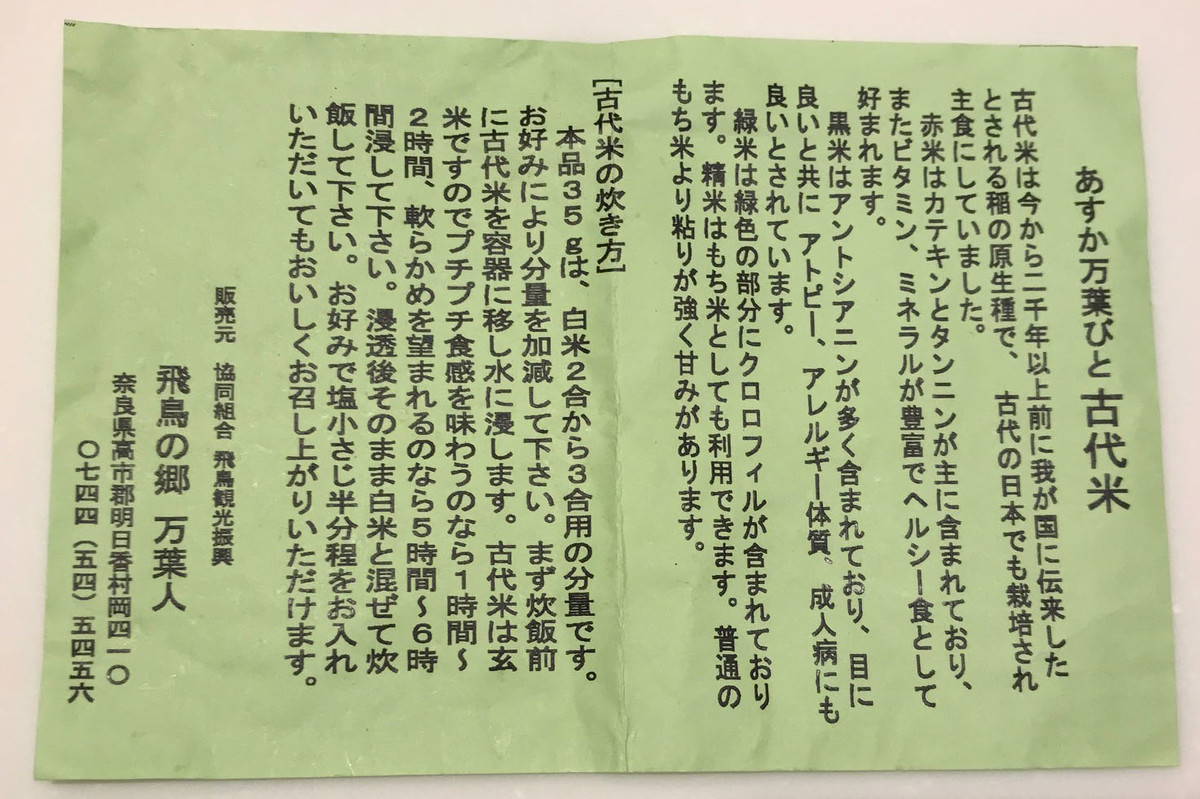 あすか万葉びと古代米
古代米は今から二千年以上前に我が国に伝来した
とされる稲の原生種で、古代の日本でも栽培され
主食にしていました。
赤米はカテキンとタンニンが主に含まれており、
またビタミン、ミネラルが豊富でヘルシー食として
好まれます。
黒米はアントシアニンが多く含まれており、目に
良いと共に アトピー、アレルギー体質、成人病にも
良いとされています。
緑米は緑色の部分にクロロフィルが含まれており
ます。精米はもち米としても利用できます。普通の
もち米より粘りが強く甘みがあります。
[古代米の炊き方]
本品35gは、白米2合から3合用の分量です。
お好みにより分量を加減して下さい。まず炊飯前
に古代米を容器に移し水に浸します。古代米は玄
米ですのでプチプチ食感を味わうのなら1時間~
2時間、軟らかめを望まれるのなら5時間~6時
間浸して下さい。浸透後そのまま白米と混ぜて炊
飯して下さい。お好みで塩小さじ半分程をお入れ
いただいてもおいしくお召し上がりいただけます。
販売元 協同組合 飛鳥観光振興
飛鳥の郷 万葉人
奈良県高市郡明日香村岡四一〇
〇七四四(五四)五四五六